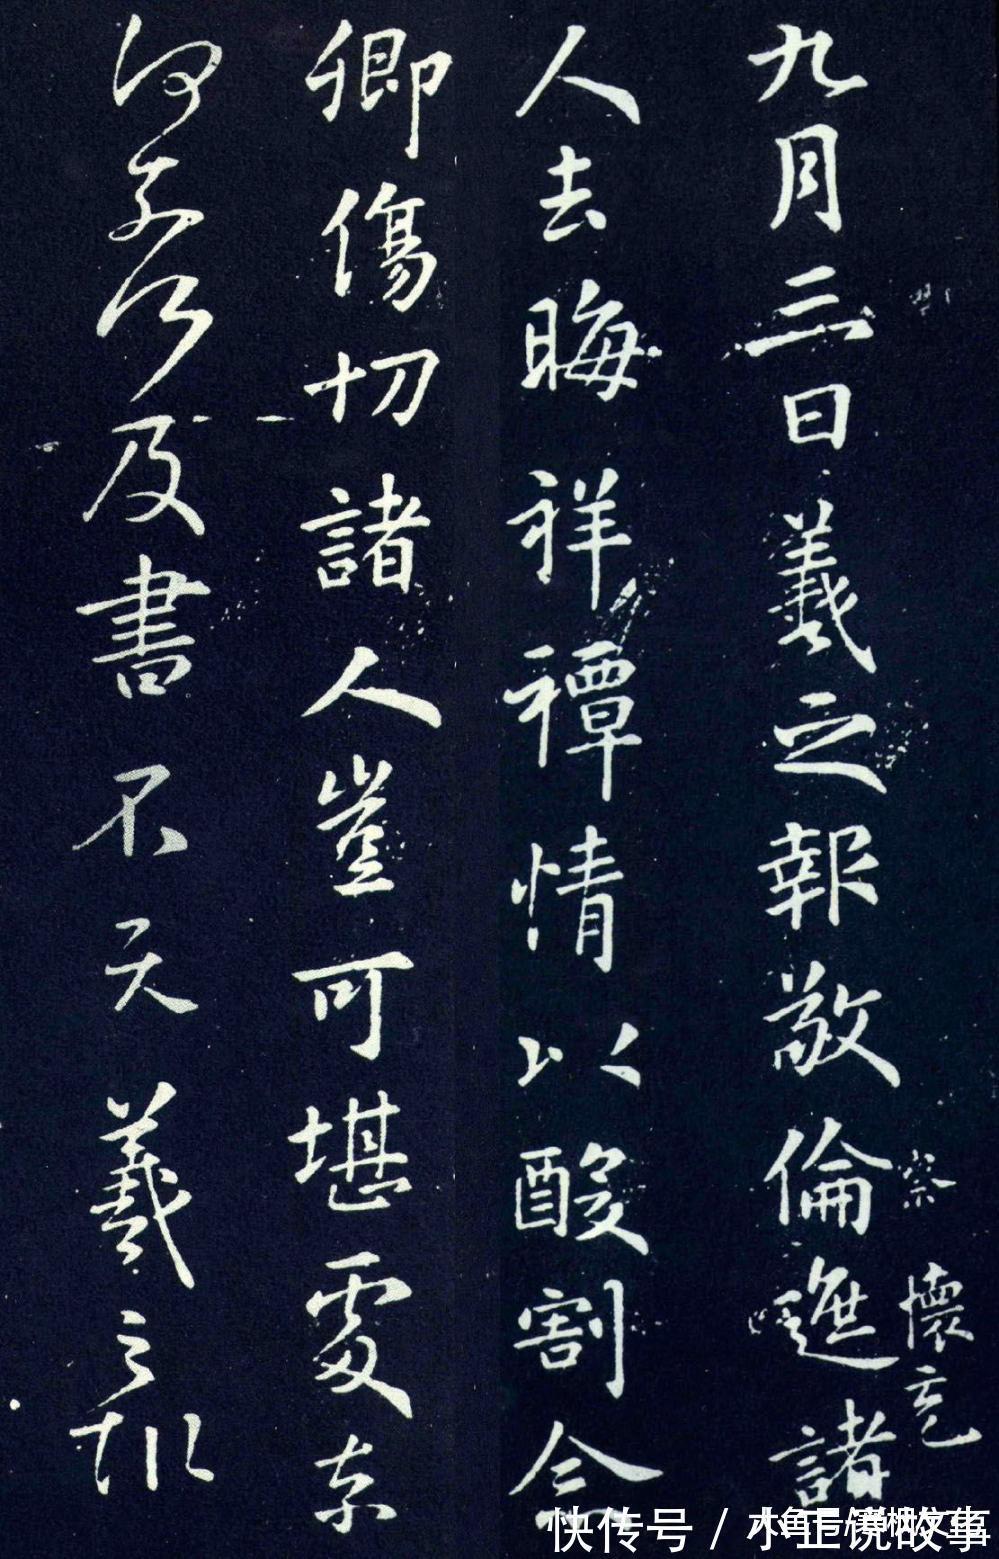 九月三日羲之報敬倫遮諸
察 懷充
人去晦祥禫情以酸割念
卿傷切諸人豈可堪處奈
何奈何及書不次羲之報
快传号 / 小正说故事